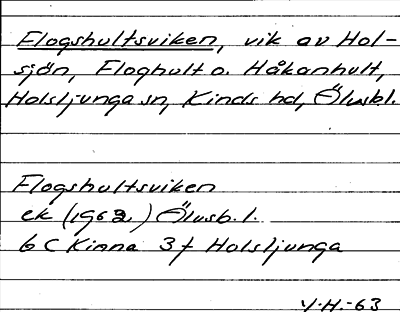 Flogshultsviken, vik av Hol-
sjön, Floghult o. Håkanhult,
Holsljunga sn, Kinds hd, Älvsbl.
Flogshultsviken
ek (1962) Älvsb. l.
6 C Kinna 3 f Holsljunga
Y.H.-63